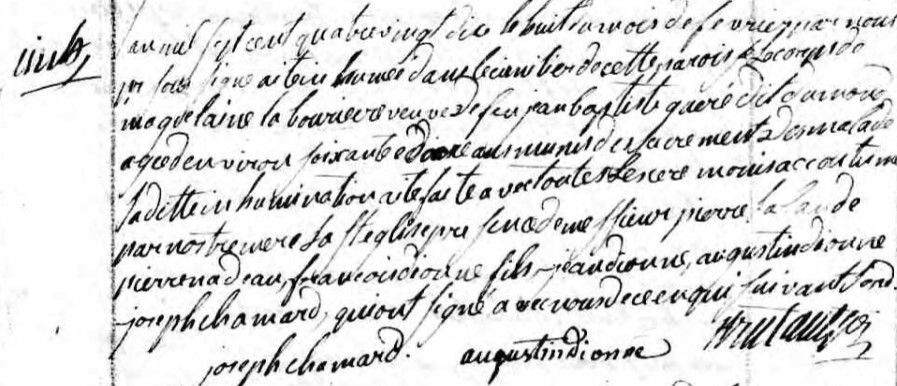 inh
lan mil sept cent quatre vingt dix le huit du mois de fevriez par nous
soussigné a ete in humée dans le cimetier de cette paroisse le corps de
maguelaine la bourierre veuve de feu jean baptiste gueré dit dumond
agee denviron soixante et douze ans munis des sacrements des malade
la ditte in humination a ete faite avec toutes les ceremonis accoutume
par nostre mere la ste eglise presence de messieur pierre la lande
pierre nadeau, francois dionne fils jean dionne, augustin dionne
joseph chamard, qui ont signé avec nous de ce enqui suivant lord.
joseph chamard. augustin dionne